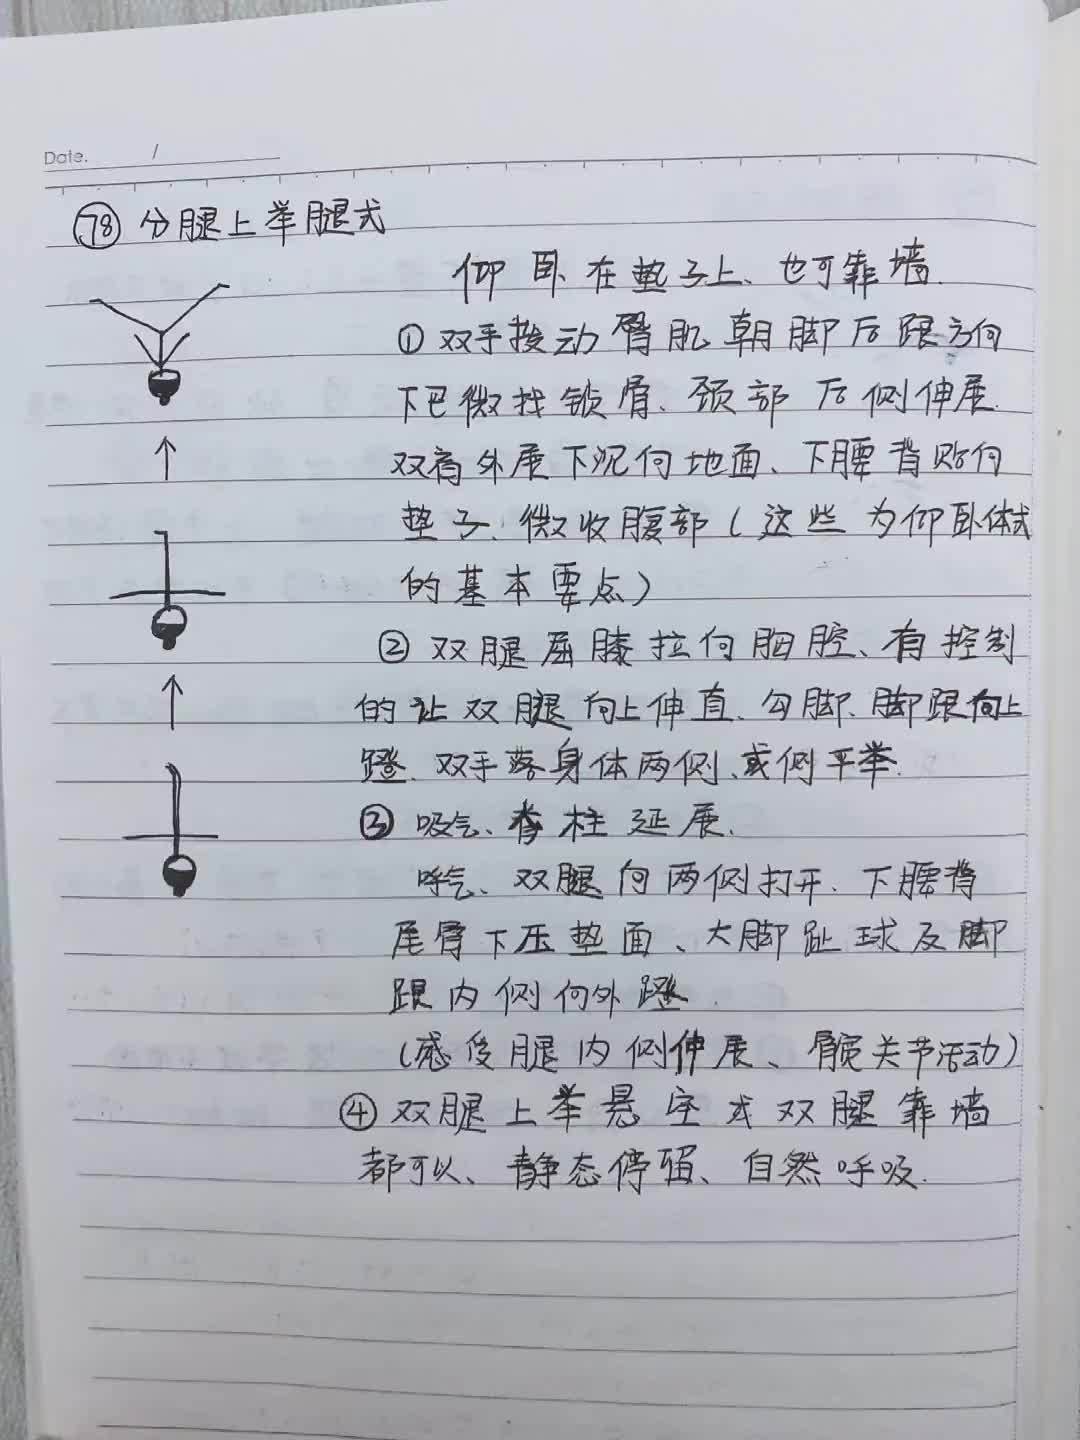 Date. /
78 分腿上举腿式
仰卧在垫子上、也可靠墙.
① 双手拨动臀肌朝脚后跟方向
下巴微找锁骨、颈部后侧伸展.
双肩外展下沉向地面、下腰背贴向
垫子、微收腹部(这些为仰卧体式
的基本要点)
② 双腿屈膝拉向胸腔、有控制
的让双腿向上伸直、勾脚、脚跟向上
蹬.双手落身体两侧、或侧平举.
③ 吸气、脊柱延展.
呼气、双腿向两侧打开.下腰背
尾骨下压垫面、大脚趾球及脚
跟内侧向外蹬.
(感受腿内侧伸展、髋关节活动)
④ 双腿上举悬空或双腿靠墙
都可以、静态停留、自然呼吸.